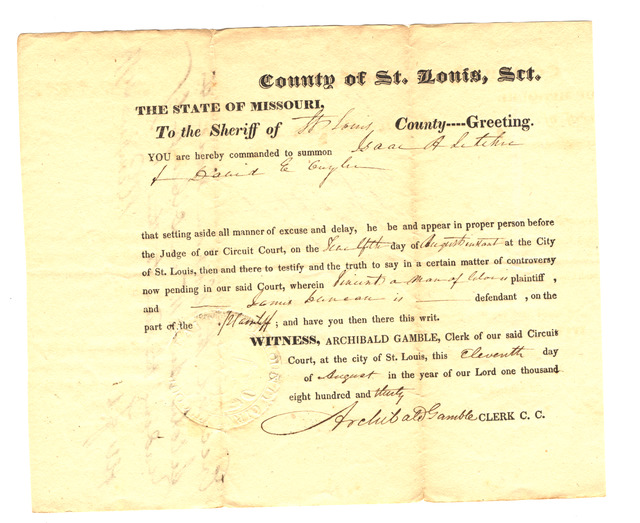 County of St. Louis, Sct.
THE STATE OF MISSOURI,
To the Sheriff of St Louis County----Greeting.
YOU are hereby commanded to summon Isaac A Letcher
& David E Cuyler
that setting aside all manner of excuse and delay, he be and appear in proper person before
the Judge of our Circuit Court, on the Twelfth day of August instant at the City
of St. Louis, then and there to testify and the truth to say in a certain matter of controversy
now pending in our said Court, wherein Vincent a man of color is plaintiff ,
and James Duncan is defendant , on the
part of the plaintiff ; and have you then there this writ.
WITNESS, ARCHIBALD GAMBLE, Clerk of our said Circuit
Court, at the city of St. Louis, this eleventh day
of August in the year of our Lord one thousand
eight hundred and thirty
Archibald Gamble CLERK C. C.